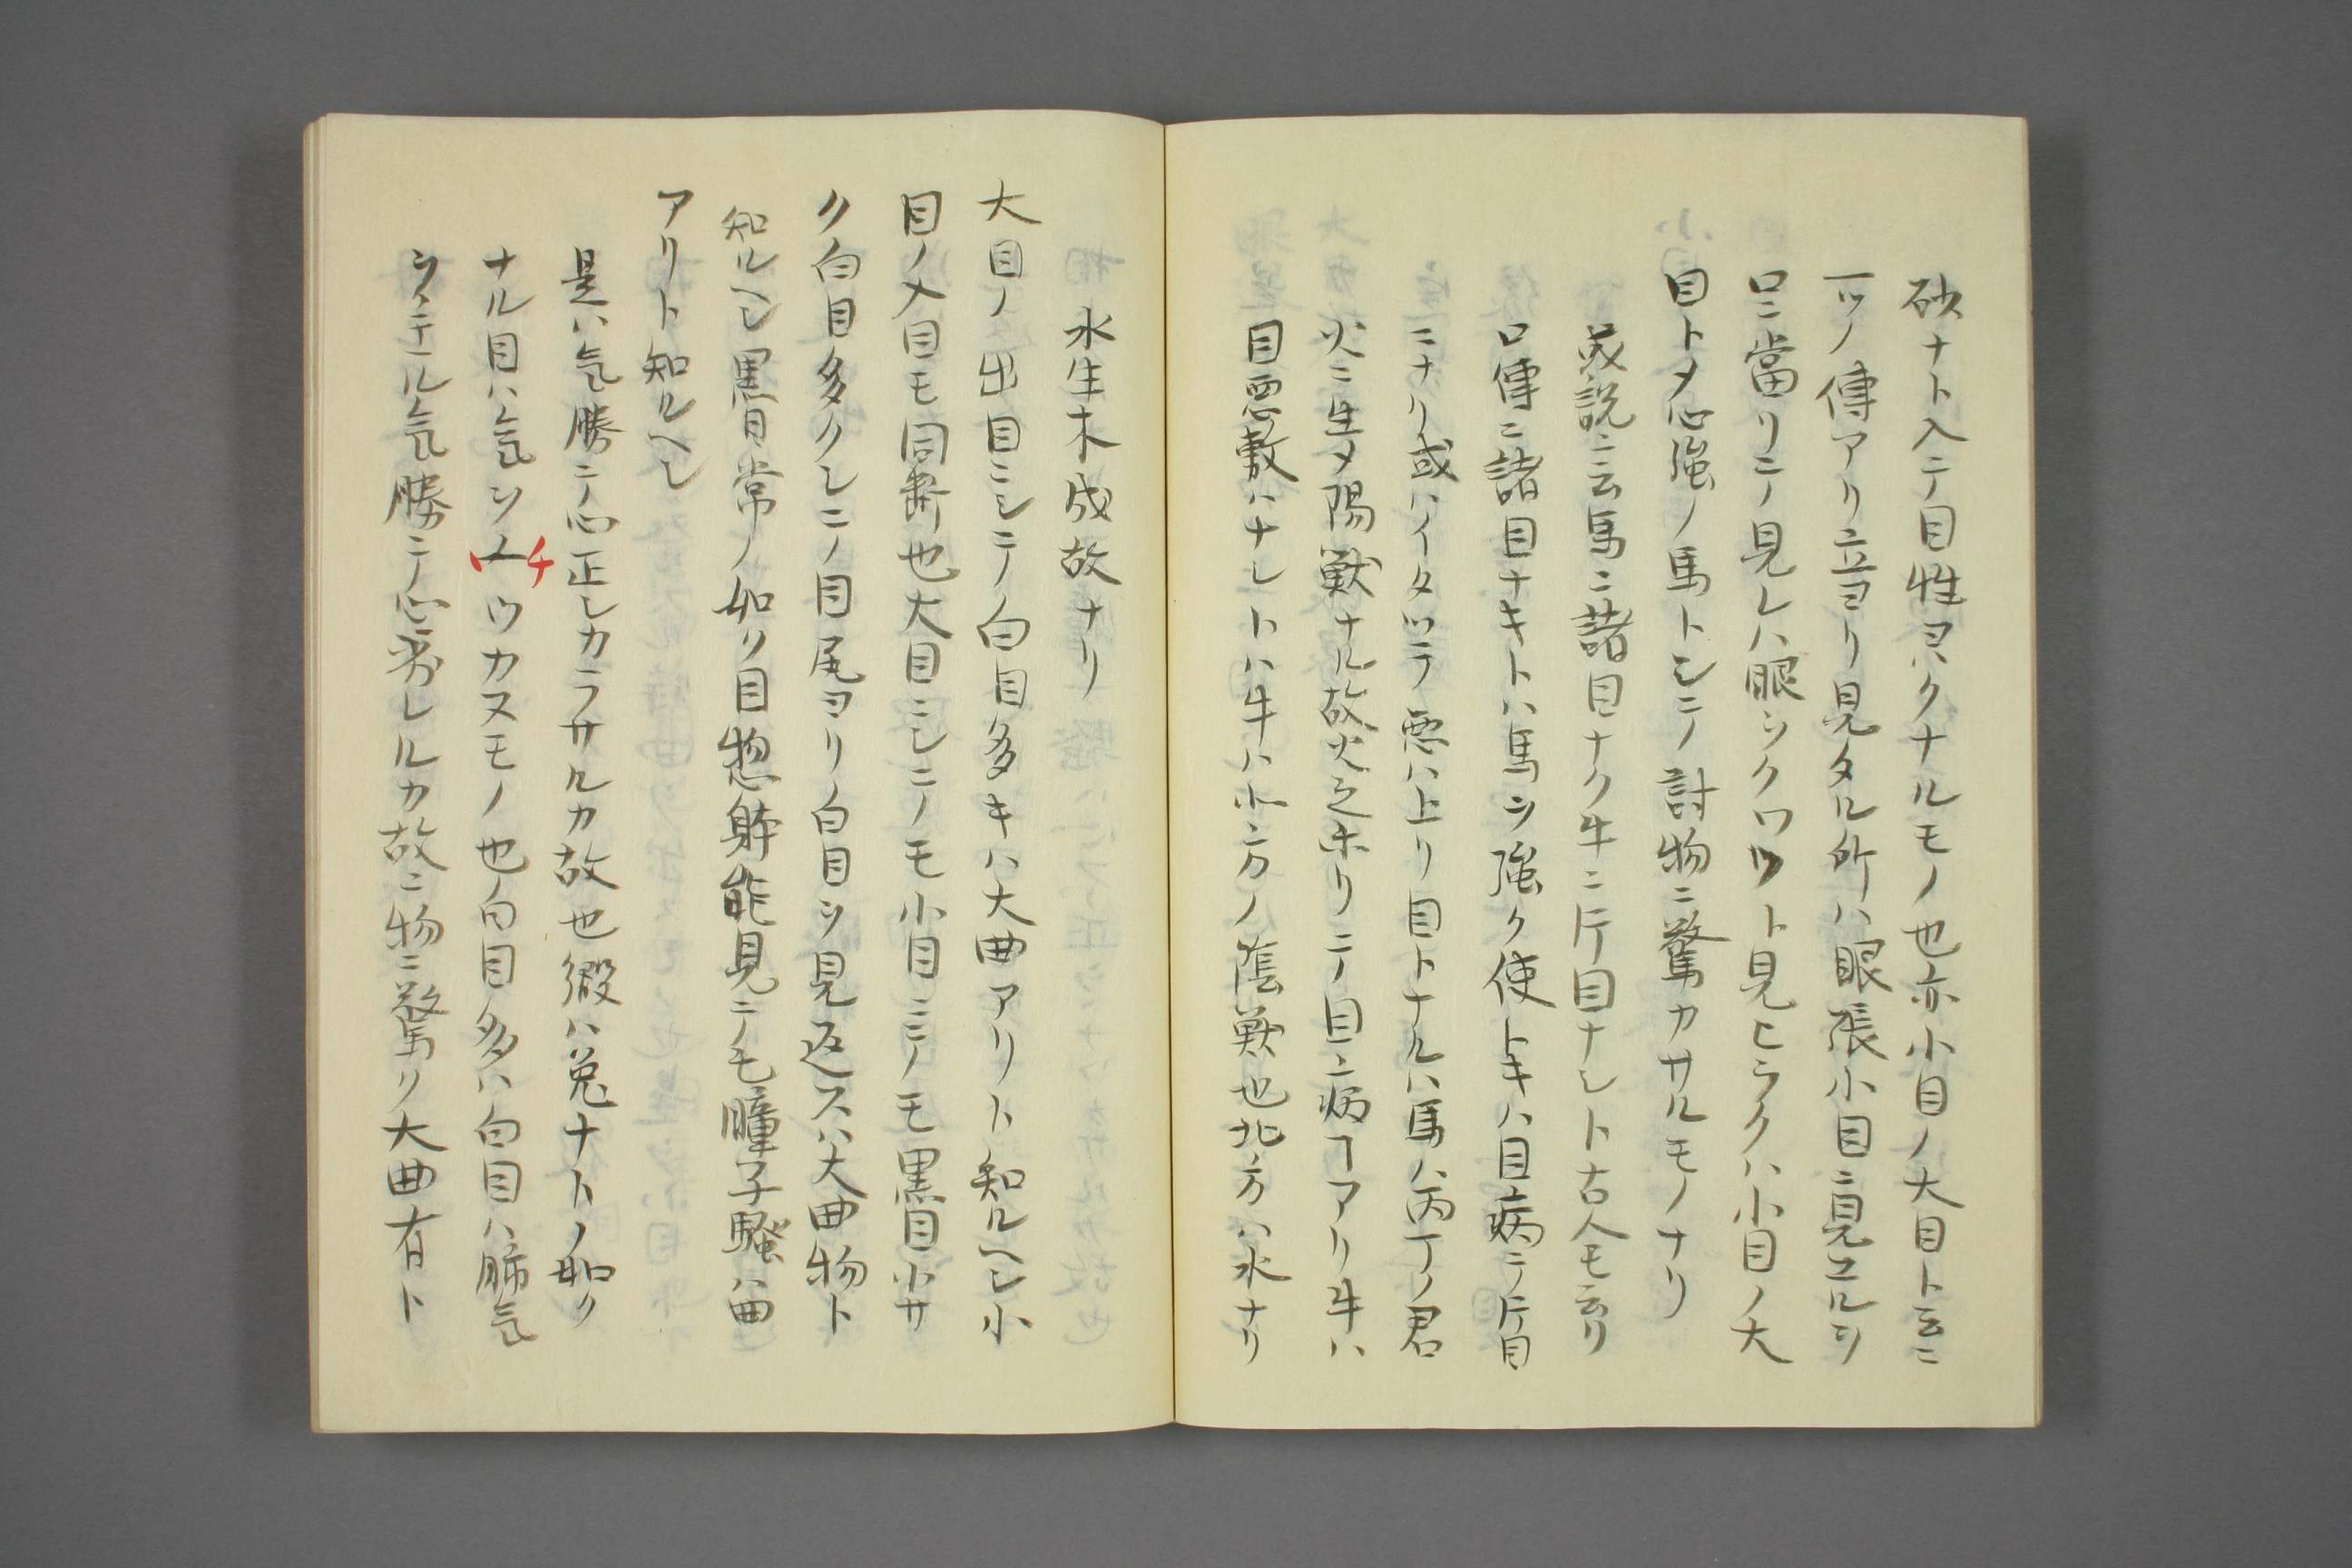 砂ナト入テ目性ヨハクナルモノ也亦小目ノ大目ト云ニ
一ツノ傳アリ立ヨリ見タル所ハ眼張小目ニ見ユルヲ
口ニ當リテ見レハ眼ヲクワツト見ヒラクハ小目ノ大
目トメ心強ノ馬トシテ討物ニ驚カサルモノナリ
或説ニ云馬ニ諸目ナク牛ニ片目ナシト古人モ云リ
口傳ニ諸目ナキトハ馬ヲ強ク使トキハ目病テ片目
ニナリ或ハイタツラ悪ハ上リ目トナルハ馬ハ丙丁ノ君
火ニ生メ陽獣ナル故火之ホリテ目ニ病アリ牛ハ
目悪敷ハナシトハ牛ハ北方ノ陰獣也北方ハ水ナリ
水生木成故ナリ
大目ノ出目ニシテ白目多キハ大曲アリト知ルヘシ小
目ノ入目モ同断也大目ニシテモ小目ニテモ黒目小サ
ク白目多クシテ目尾ヨリ白目ヲ見返スハ大曲物ト
知ルヘシ黒目常ノ如ク目惣躰能見テモ瞳子騒ハ曲
アリト知ルヘシ
是ハ気勝テ心正シカラサルカ故也縦ハ兎ナトノ如ク
ナル目ハ気ヲチウカスモノ也白目多ハ白目ハ肺気
ヲ気勝テ心劣レルカ故ニ物ニ驚ク大曲有ト